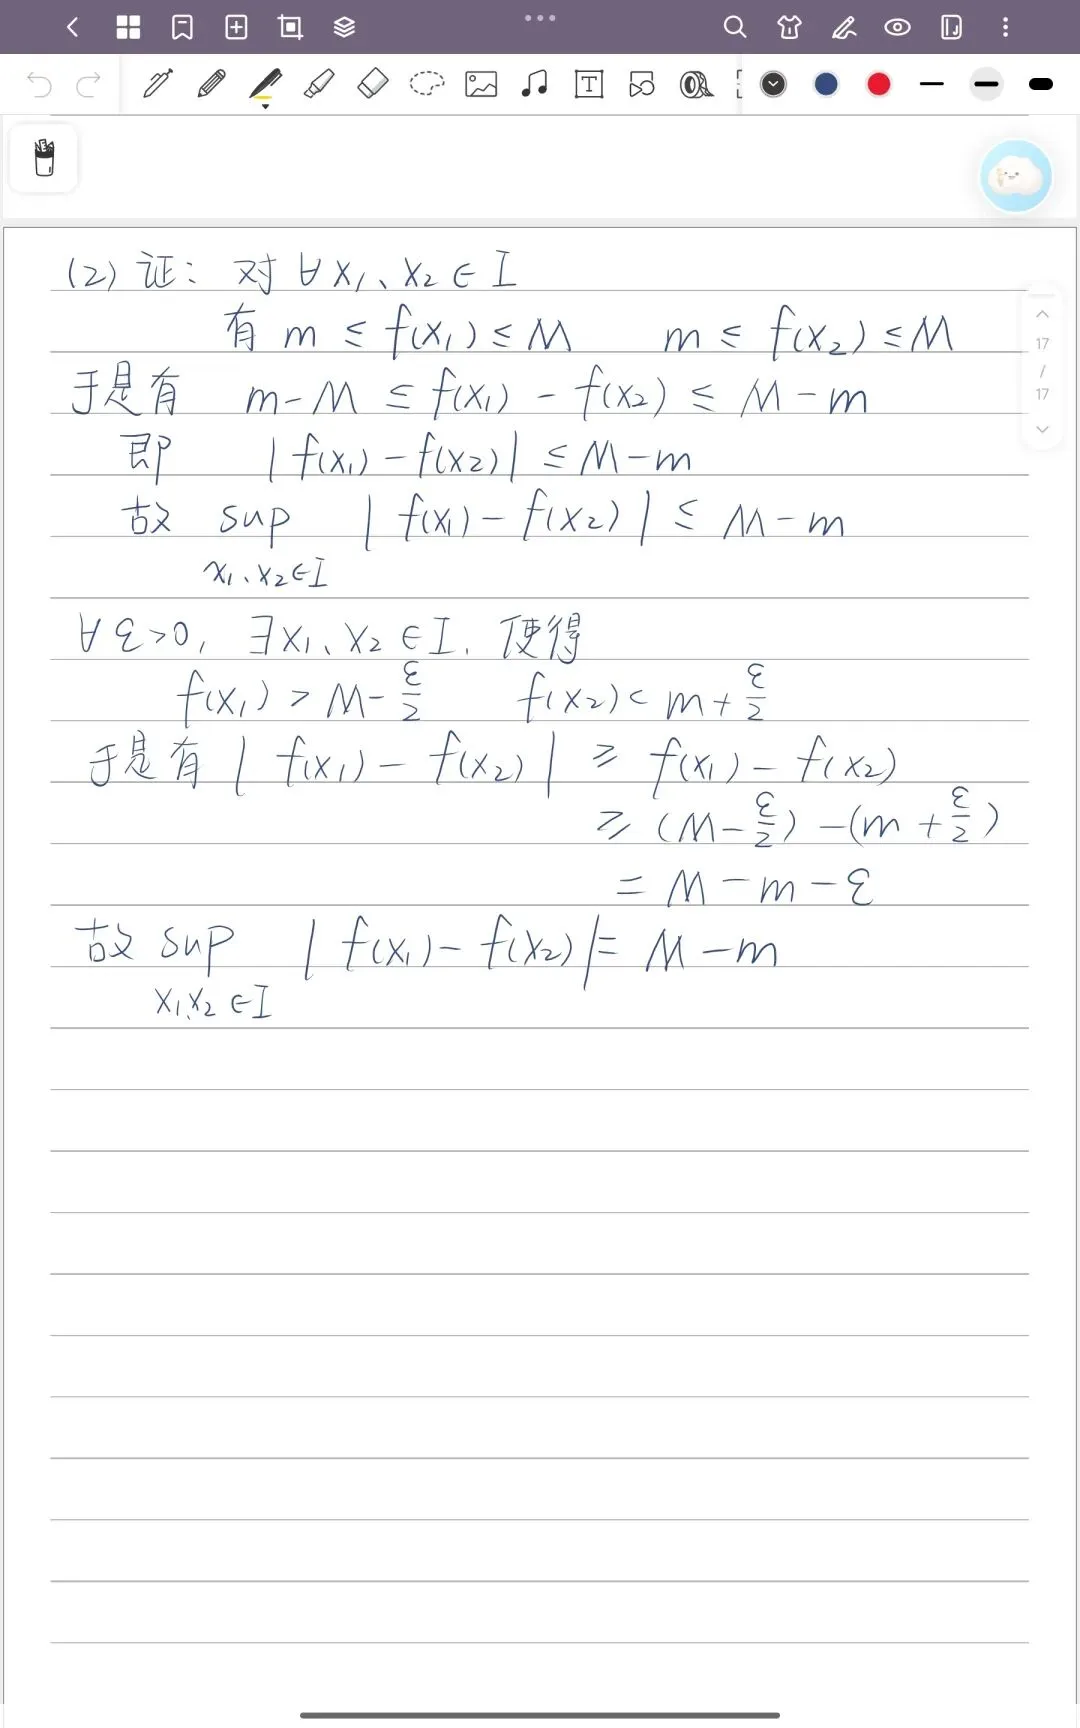 17
/
17
(2) 证: 对 ∀ x₁、x₂ ∈ I
有 m ≤ f(x₁) ≤ M m ≤ f(x₂) ≤ M
于是有 m - M ≤ f(x₁) - f(x₂) ≤ M - m
即 | f(x₁) - f(x₂) | ≤ M - m
故 sup | f(x₁) - f(x₂) | ≤ M - m
x₁、x₂ ∈ I
∀ ε > 0, ∃ x₁、x₂ ∈ I, 使得
f(x₁) > M - ε/2 f(x₂) < m + ε/2
于是有 | f(x₁) - f(x₂) | ≥ f(x₁) - f(x₂)
≥ (M - ε/2) - (m + ε/2)
= M - m - ε
故 sup | f(x₁) - f(x₂) | = M - m
x₁、x₂ ∈ I